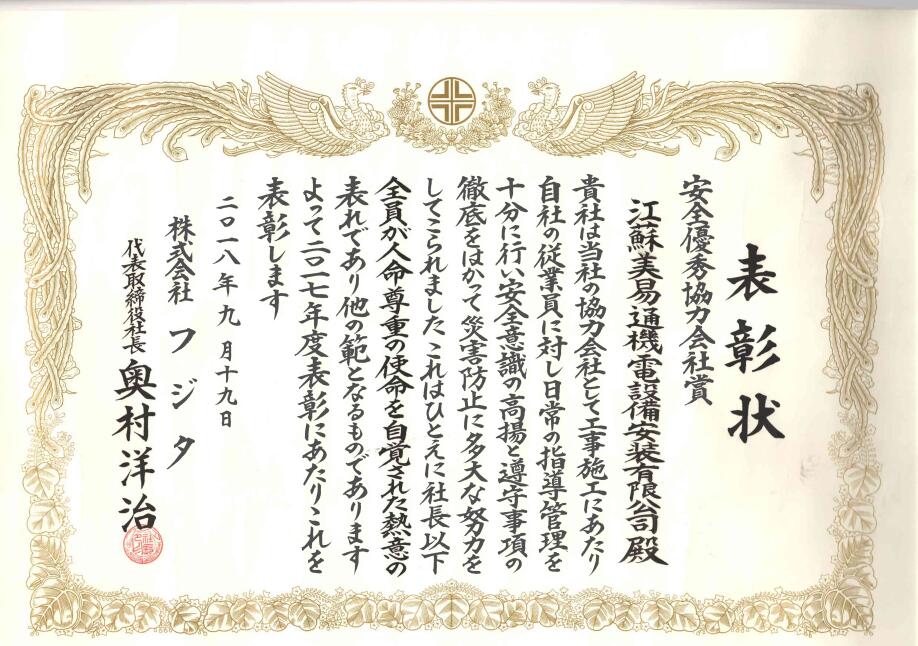 表彰状
安全優秀協力会社賞
江蘇美易通機電設備安装有限公司殿
貴社は当社の協力会社として工事施工にあたり
自社の従業員に対し日常の指導管理を
十分に行い安全意識の高揚と遵守事項の
徹底をはかって災害防止に多大な努力を
してこられました これはひとえに社長以下
全員が人命尊重の使命を自覚された熱意の
表れであり他の範となるものであります
よって二〇一七年度表彰にあたりこれを
表彰します
二〇一八年九月十九日
株式会社フジタ
代表取締役社長 奥村洋治